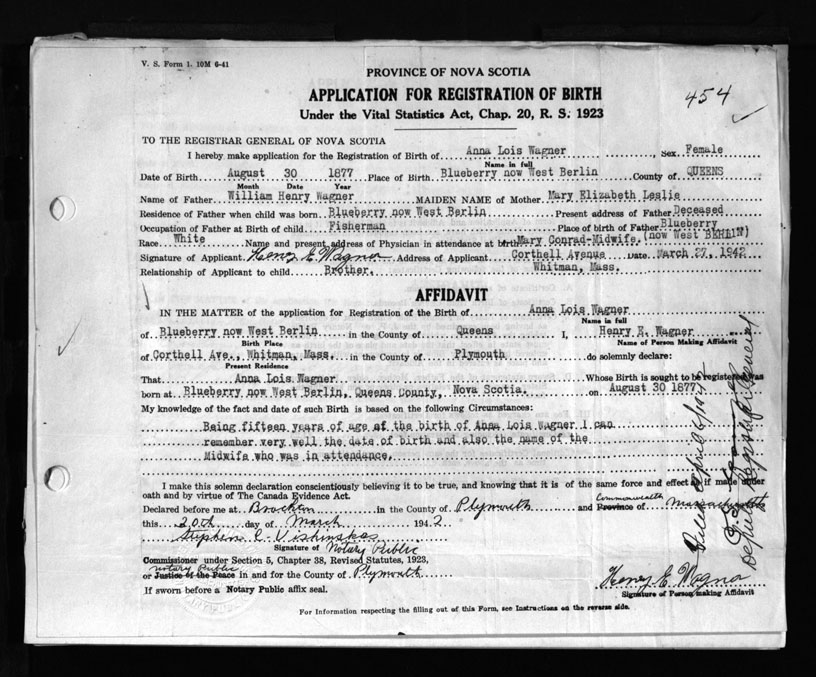 V. S. Form 1. 10M 6-41
PROVINCE OF NOVA SCOTIA
APPLICATION FOR REGISTRATION OF BIRTH
454
Under the Vital Statistics Act, Chap. 20, R. S. 1923
TO THE REGISTRAR GENERAL OF NOVA SCOTIA
I hereby make application for the Registration of Birth of Anna Lois Wagner, Sex Female
Name in full
Date of Birth August 30 1877 Place of Birth Blueberry now West Berlin County of QUEENS
Month Date Year
Name of Father William Henry Wagner MAIDEN NAME of Mother Mary Elizabeth Leslie
Residence of Father when child was born Blueberry now West Berlin Present address of Father Deceased
Occupation of Father at Birth of child Fisherman Place of birth of Father Blueberry
Race White Name and present address of Physician in attendance at birth Mary Conrad-Midwife. (now West BERLIN)
Signature of Applicant Henry E. Wagner Address of Applicant Corthell Avenue Date March 27, 1942
Relationship of Applicant to child Brother. Whitman, Mass.
AFFIDAVIT
IN THE MATTER of the application for Registration of the Birth of Anna Lois Wagner
Name in full
of Blueberry now West Berlin in the County of Queens I, Henry E. Wagner
Birth Place Name of Person Making Affidavit
of Corthell Ave., Whitman, Mass. in the County of Plymouth do solemnly declare:
Present Residence
That Anna Lois Wagner Whose Birth is sought to be registered was
born at Blueberry now West Berlin, Queens County, Nova Scotia. on August 30 1877
My knowledge of the fact and date of such Birth is based on the following Circumstances:
Being fifteen years of age at the birth of Anna Lois Wagner I can
remember very well the date of birth and also the name of the
Midwife who was in attendance.
I make this solemn declaration conscientiously believing it to be true, and knowing that it is of the same force and effect as if made under
oath and by virtue of The Canada Evidence Act.
Commonwealth
Declared before me at Brockton in the County of Plymouth and Province of Massachusetts
this 20th day of March 1942
Stephen C.
Signature of Notary Public
Commissioner under Section 5, Chapter 38, Revised Statutes, 1923,
Notary Public
or Justice of the Peace in and for the County of Plymouth
Henry E Wagner
If sworn before a Notary Public affix seal.
Signature of Person making Affidavit
For Information respecting the filling out of this Form, see Instructions on the reverse side.
Filed April 6/1942
Deputy Registrar General